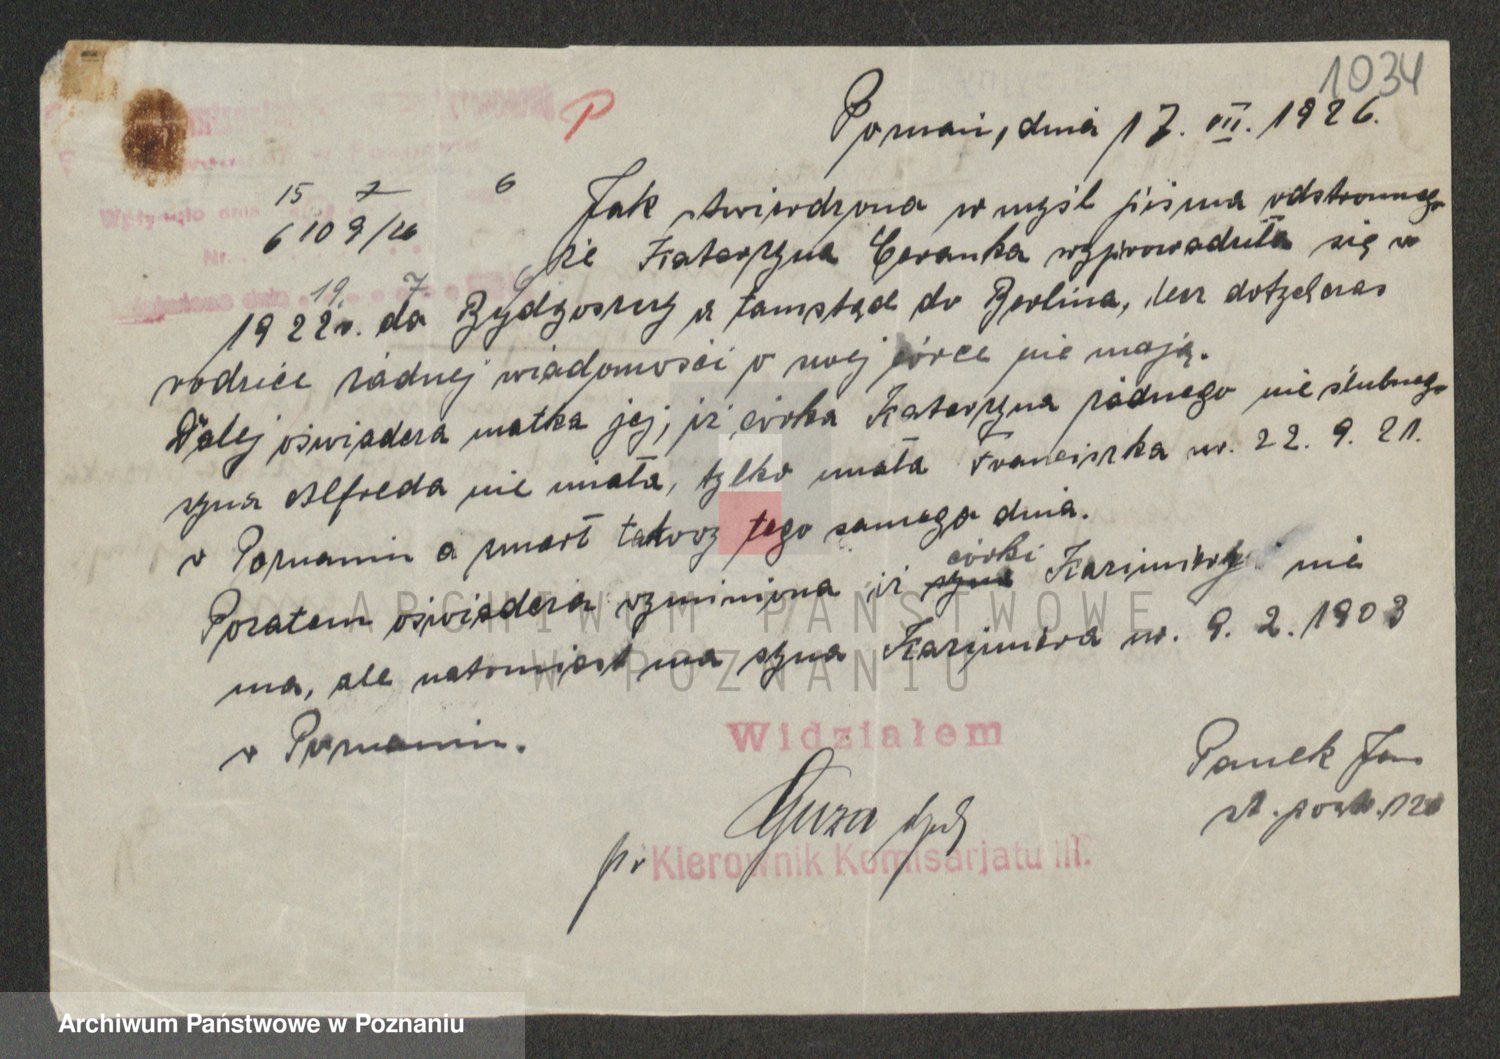 1034
P
Poznań, dnia 17. VII. 1926.
15 7 6
6109/26
Wpłynęło dnia
Nr.
19. 7.
Jak stwierdzono w myśl pisma odstronnego
że Katarzyna Ceranka wyprowadziła się w
1922 r. do Bydgoszczy a tamstąd do Berlina, lecz dotychczas
rodzice żadnej wiadomości o swej córce nie mają.
Dalej oświadcza matka jej, iż córka Katarzyna żadnego nie ślubnego
syna Alfreda nie miała, tylko miała Franciszka ur. 22. 9. 21.
w Poznaniu a zmarł takowy tego samego dnia.
Pozatem oświadcza wymieniona iż syna córki Kazimiery nie
ma, ale natomiast ma syna Kazimiera ur. 9. 2. 1903
w Poznaniu.
Widziałem
Panek Jan
st. post. 120
Guza
pr Kierownik Komisarjatu III.
ARCHIWUM PAŃSTWOWE
W POZNANIU
Archiwum Państwowe w Poznaniu